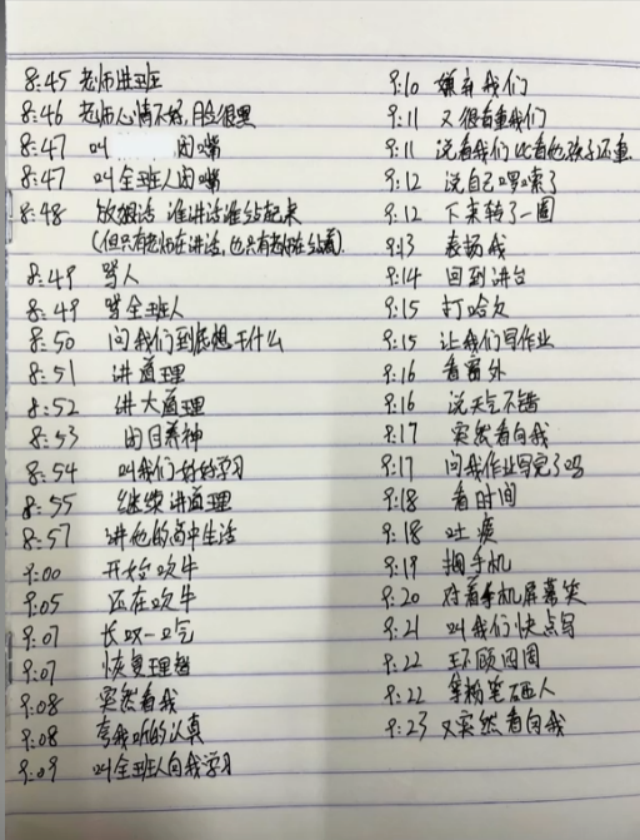 8:45 老师进班
8:46 老师心情不好,脸很黑
8:47 叫 闭嘴
8:47 叫全班人闭嘴
8:48 放狠话 谁讲话谁站起来
(但只有老师在讲话,也只有老师在站着).
8:49 骂人
8:49 骂全班人
8:50 问我们到底想干什么
8:51 讲道理
8:52 讲大道理
8:53 闭目养神
8:54 叫我们好好学习
8:55 继续讲道理
8:57 讲他的高中生活
9:00 开始吹牛
9:05 还在吹牛
9:07 长叹一口气
9:07 恢复理智
9:08 突然看我
9:08 夸我听的认真
9:09 叫全班人向我学习
9:10 嫌弃我们
9:11 又很看重我们
9:11 说看我们比看他孩子还重
9:12 说自己啰嗦了
9:12 下来转了一圈
9:13 表扬我
9:14 回到讲台
9:15 打哈欠
9:15 让我们写作业
9:16 看窗外
9:16 说天气不错
9:17 突然看向我
9:17 问我作业写完了吗
9:18 看时间
9:18 吐痰
9:19 掏手机
9:20 对着手机屏幕笑
9:21 叫我们快点写
9:22 环顾四周
9:22 拿粉笔砸人
9:23 又突然看向我